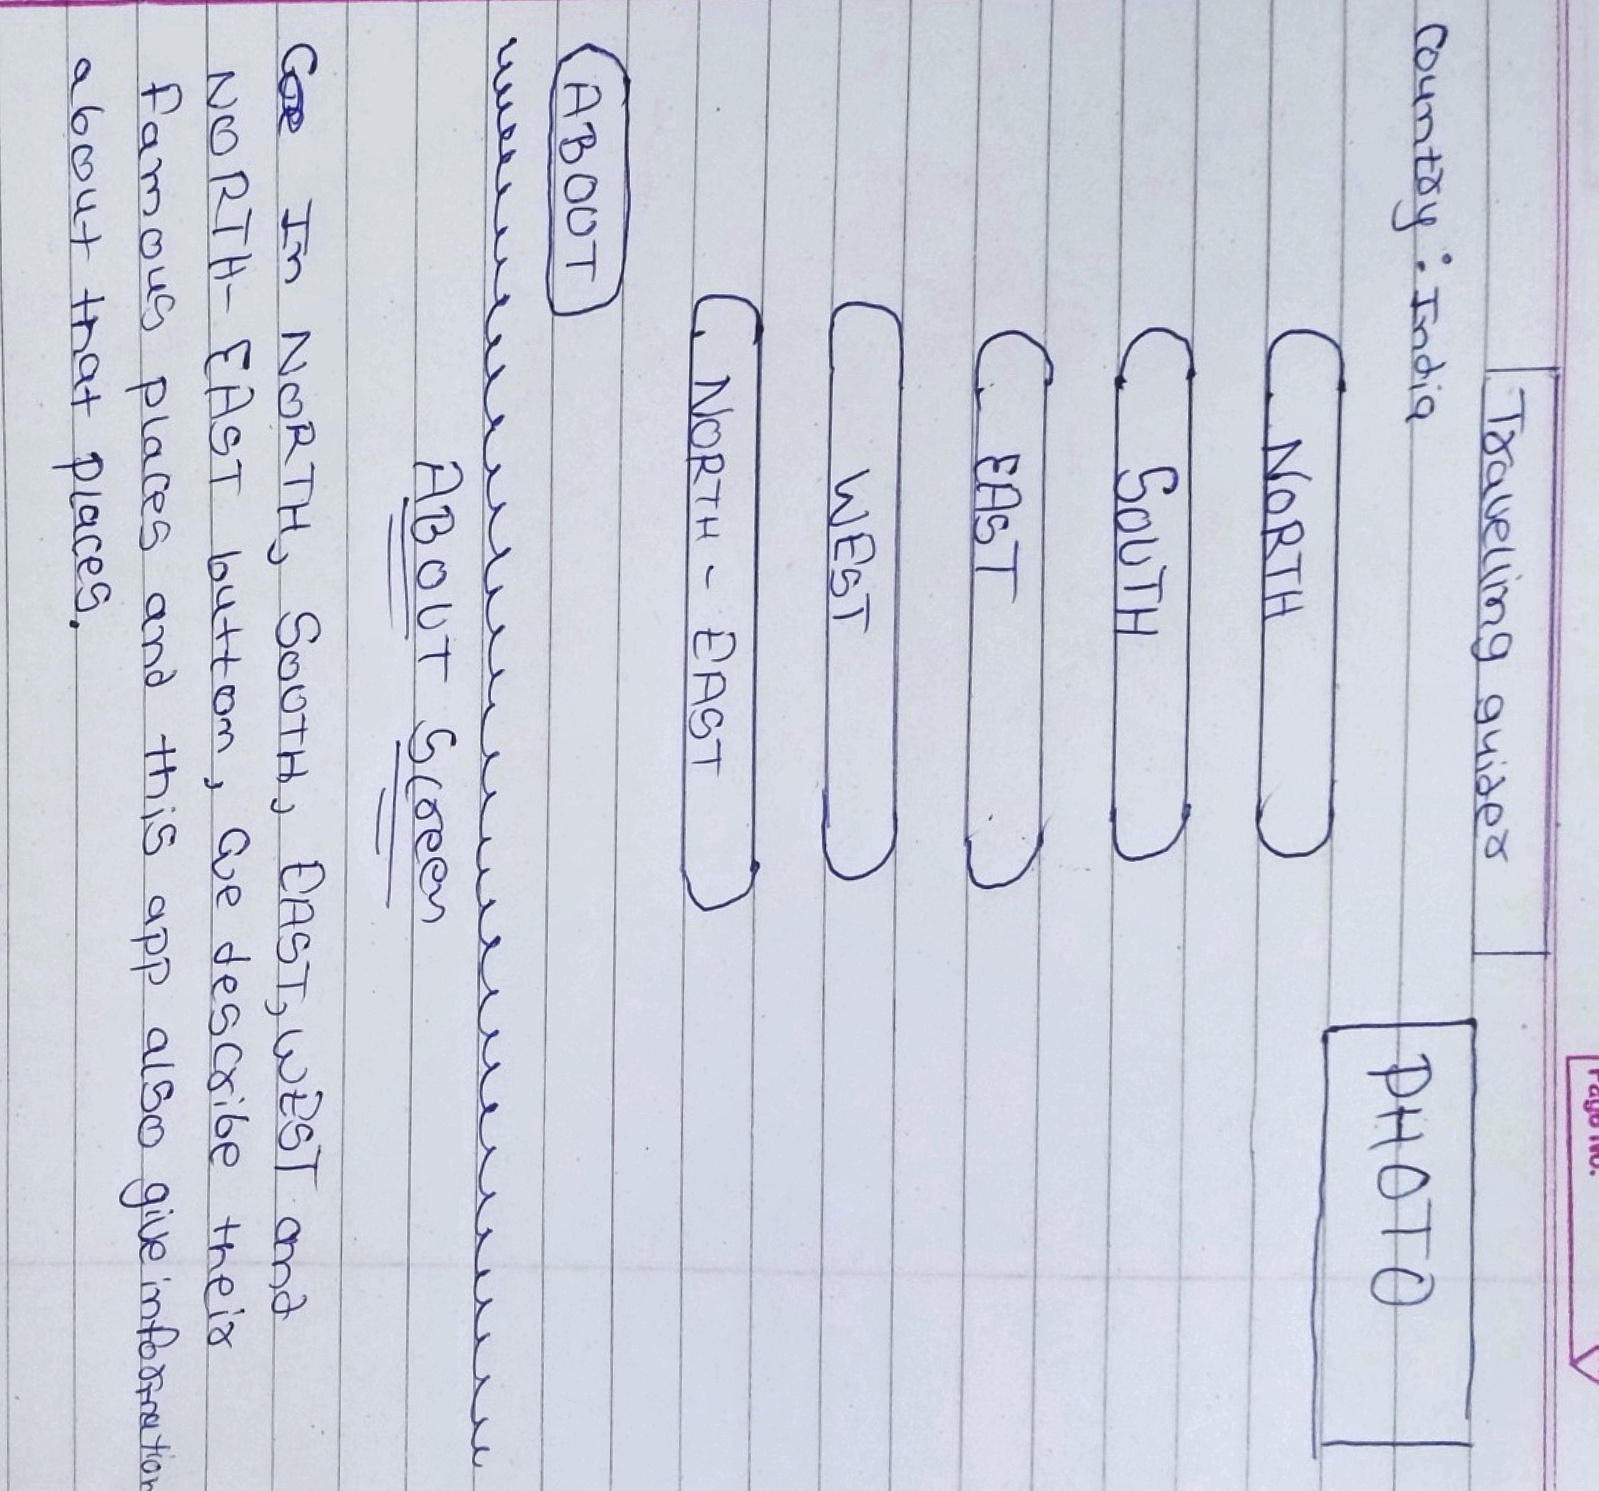 Page No.
Traveling guider
PHOTO
Country : India
NORTH
SOUTH
EAST
WEST
NORTH - EAST
ABOUT
ABOUT Screen
In NORTH, SOUTH, EAST, WEST and
NORTH- EAST button, we describe their
famous places and this app also give information
about that places.